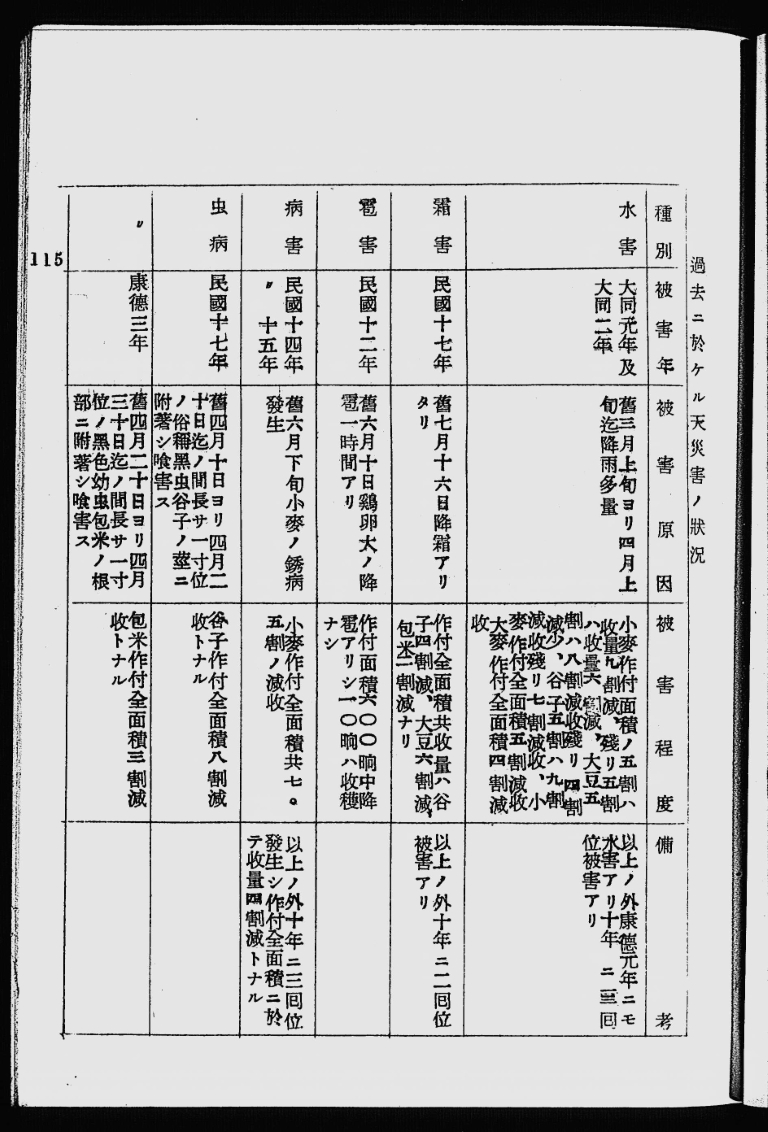 過去ニ於ケル天災害ノ狀況
種別
被害年
被害原因
被害程度
備考
水害
大同元年及
大同二年
舊三月上旬ヨリ四月上
旬迄降雨多量
小麥作付面積ノ五割ハ
收量九割減、殘リ五割
ハ收量六割減、大豆五
割ハ八割減收殘リ四割
減少、谷子五割ハ九割
減收殘リ七割減收、小
麥作付全面積五割減收
大麥作付全面積四割減
收
以上ノ外康德元年ニモ
水害アリ十年ニ二三回
位被害アリ
霜害
民國十七年
舊七月十六日降霜アリ
タリ
作付全面積共收量ハ谷
子四割減、大豆六割減、
包米二割減ナリ
以上ノ外十年ニ二回位
被害アリ
雹害
民國十二年
舊六月十日鷄卵大ノ降
雹一時間アリ
作付面積六〇〇晌中降
雹アリシ一〇晌ハ收穫
ナシ
病害
民國十四年
〃十五年
舊六月下旬小麥ノ銹病
發生
小麥作付全面積共七。
五割ノ減收
以上ノ外十年ニ三回位
發生シ作付全面積ニ於
テ收量四割減トナル
虫病
民國十七年
舊四月十日ヨリ四月二
十日迄ノ間長サ一寸位
ノ俗稱黑虫谷子ノ莖ニ
附著シ喰害ス
谷子作付全面積八割減
收トナル
〃
康德三年
舊四月二十日ヨリ四月
三十日迄ノ間長サ一寸
位ノ黑色幼虫包米ノ根
部ニ附著シ喰害ス
包米作付全面積三割減
收トナル
115